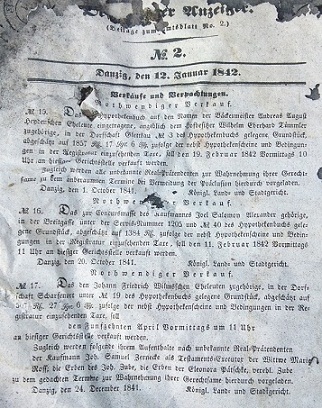 Anzeiger.
(Beilage zum Amtsblatt No. 2.)
№ 2.
Danzig, den 12. Januar 1842.
Verkäufe und Verpachtungen.
Nothwendiger Verkauf.
№ 15. Das Hypothekenbuch auf den Namen der Bäckermeister Andreas August
Heydenschen Eheleute eingetragene, angeblich dem Hofbesitzer Wilhelm Eberhard Tümmler
zugehörige, in der Dorfschaft Glettkau № 3 des Hypothekenbuchs gelegene Grundstück,
abgeschätzt auf 1857 Rß. 17 Sgr. 6 Pf. zufolge der nebst Hypothekenscheine und Bedingun-
gen in der Registratur einzusehenden Taxe, soll den 19. Februar 1842 Vormittags 10
Uhr an hiesiger Gerichtsstelle verkauft werden.
Zugleich werden alle unbekannte Real-Prätendenten zur Wahrnehmung ihrer Gerecht-
same zu dem anberaumten Termine bei Vermeidung der Präclusion hierdurch vorgeladen.
Danzig, den 1. October 1841. Königl. Land- und Stadtgericht.
Nothwendiger Verkauf.
№ 16. Das zur Concursmasse des Kaufmanns Joel Salomon Alexander gehörige,
in der Breitgasse unter der Servis-Nummer 1205 und № 40 des Hypothekenbuchs gele-
gene Grundstück, abgeschätzt auf 1384 Rß. zufolge der nebst Hypothekenscheine und Bedin-
gungen in der Registratur einzusehenden Taxe, soll den 11. Februar 1842 Vormittags
11 Uhr an hiesiger Gerichtsstelle verkauft werden.
Danzig, den 20. October 1841. Königl. Land- und Stadtgericht.
Nothwendiger Verkauf.
№ 17. Das den Johann Friedrich Wilmschen Eheleuten zugehörige, in der Dorf-
schaft Scharfenort unter № 15 des Hypothekenbuchs gelegene Grundstück, abgeschätzt auf
27 Rß. 6 Pf. zufolge der nebst Hypothekenscheine und Bedingungen in der Re-
gistratur einzusehenden Taxe, soll
den Fünfzehnten April Vormittags um 11 Uhr
an hiesiger Gerichtsstelle verkauft werden.
Zugleich werden folgende ihrem Aufenthalt nach unbekannte Real-Prätendenten:
der Kaufmann Joh. Samuel Zernecke als Testaments-Executor der Wittwe Maria
Roß, die Erben des Joh. Jube, die Erben der Eleonora Pätschke, verehl. Jube
zu dem gedachten Termine zur Wahrnehmung ihrer Gerechtsame hierdurch vorgeladen.
Danzig, den 24. December 1841. Königl. Land- und Stadtgericht.